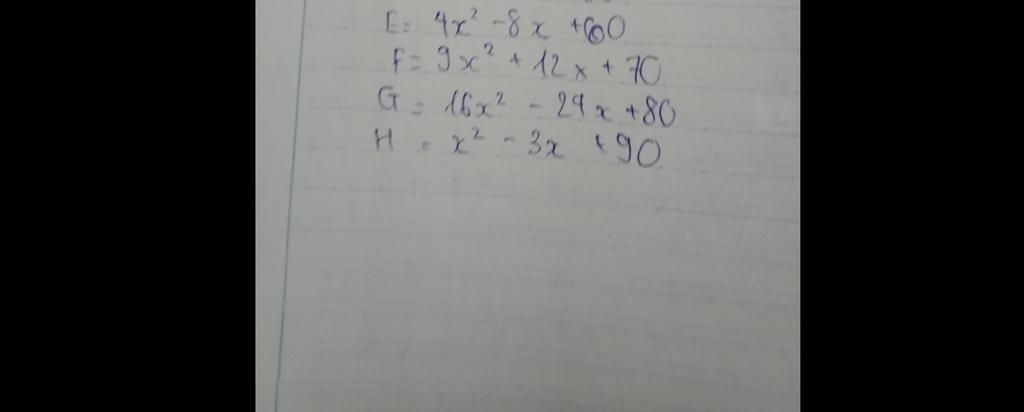 E = 4x² - 8x + 60
F = 9x² + 12x + 70
G = 16x² - 24x + 80
H = x² - 3x + 90